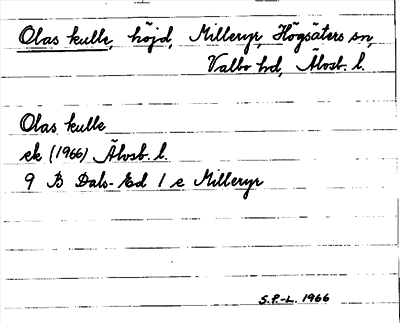 Olas kulle, höjd, Milleryr, Högsäters sn,
Valbo hd, Älvsb. l.
Olas kulle
ek (1966) Älvsb. l.
9 B Dals-Ed 1 e Milleryr
S.P.-L. 1966